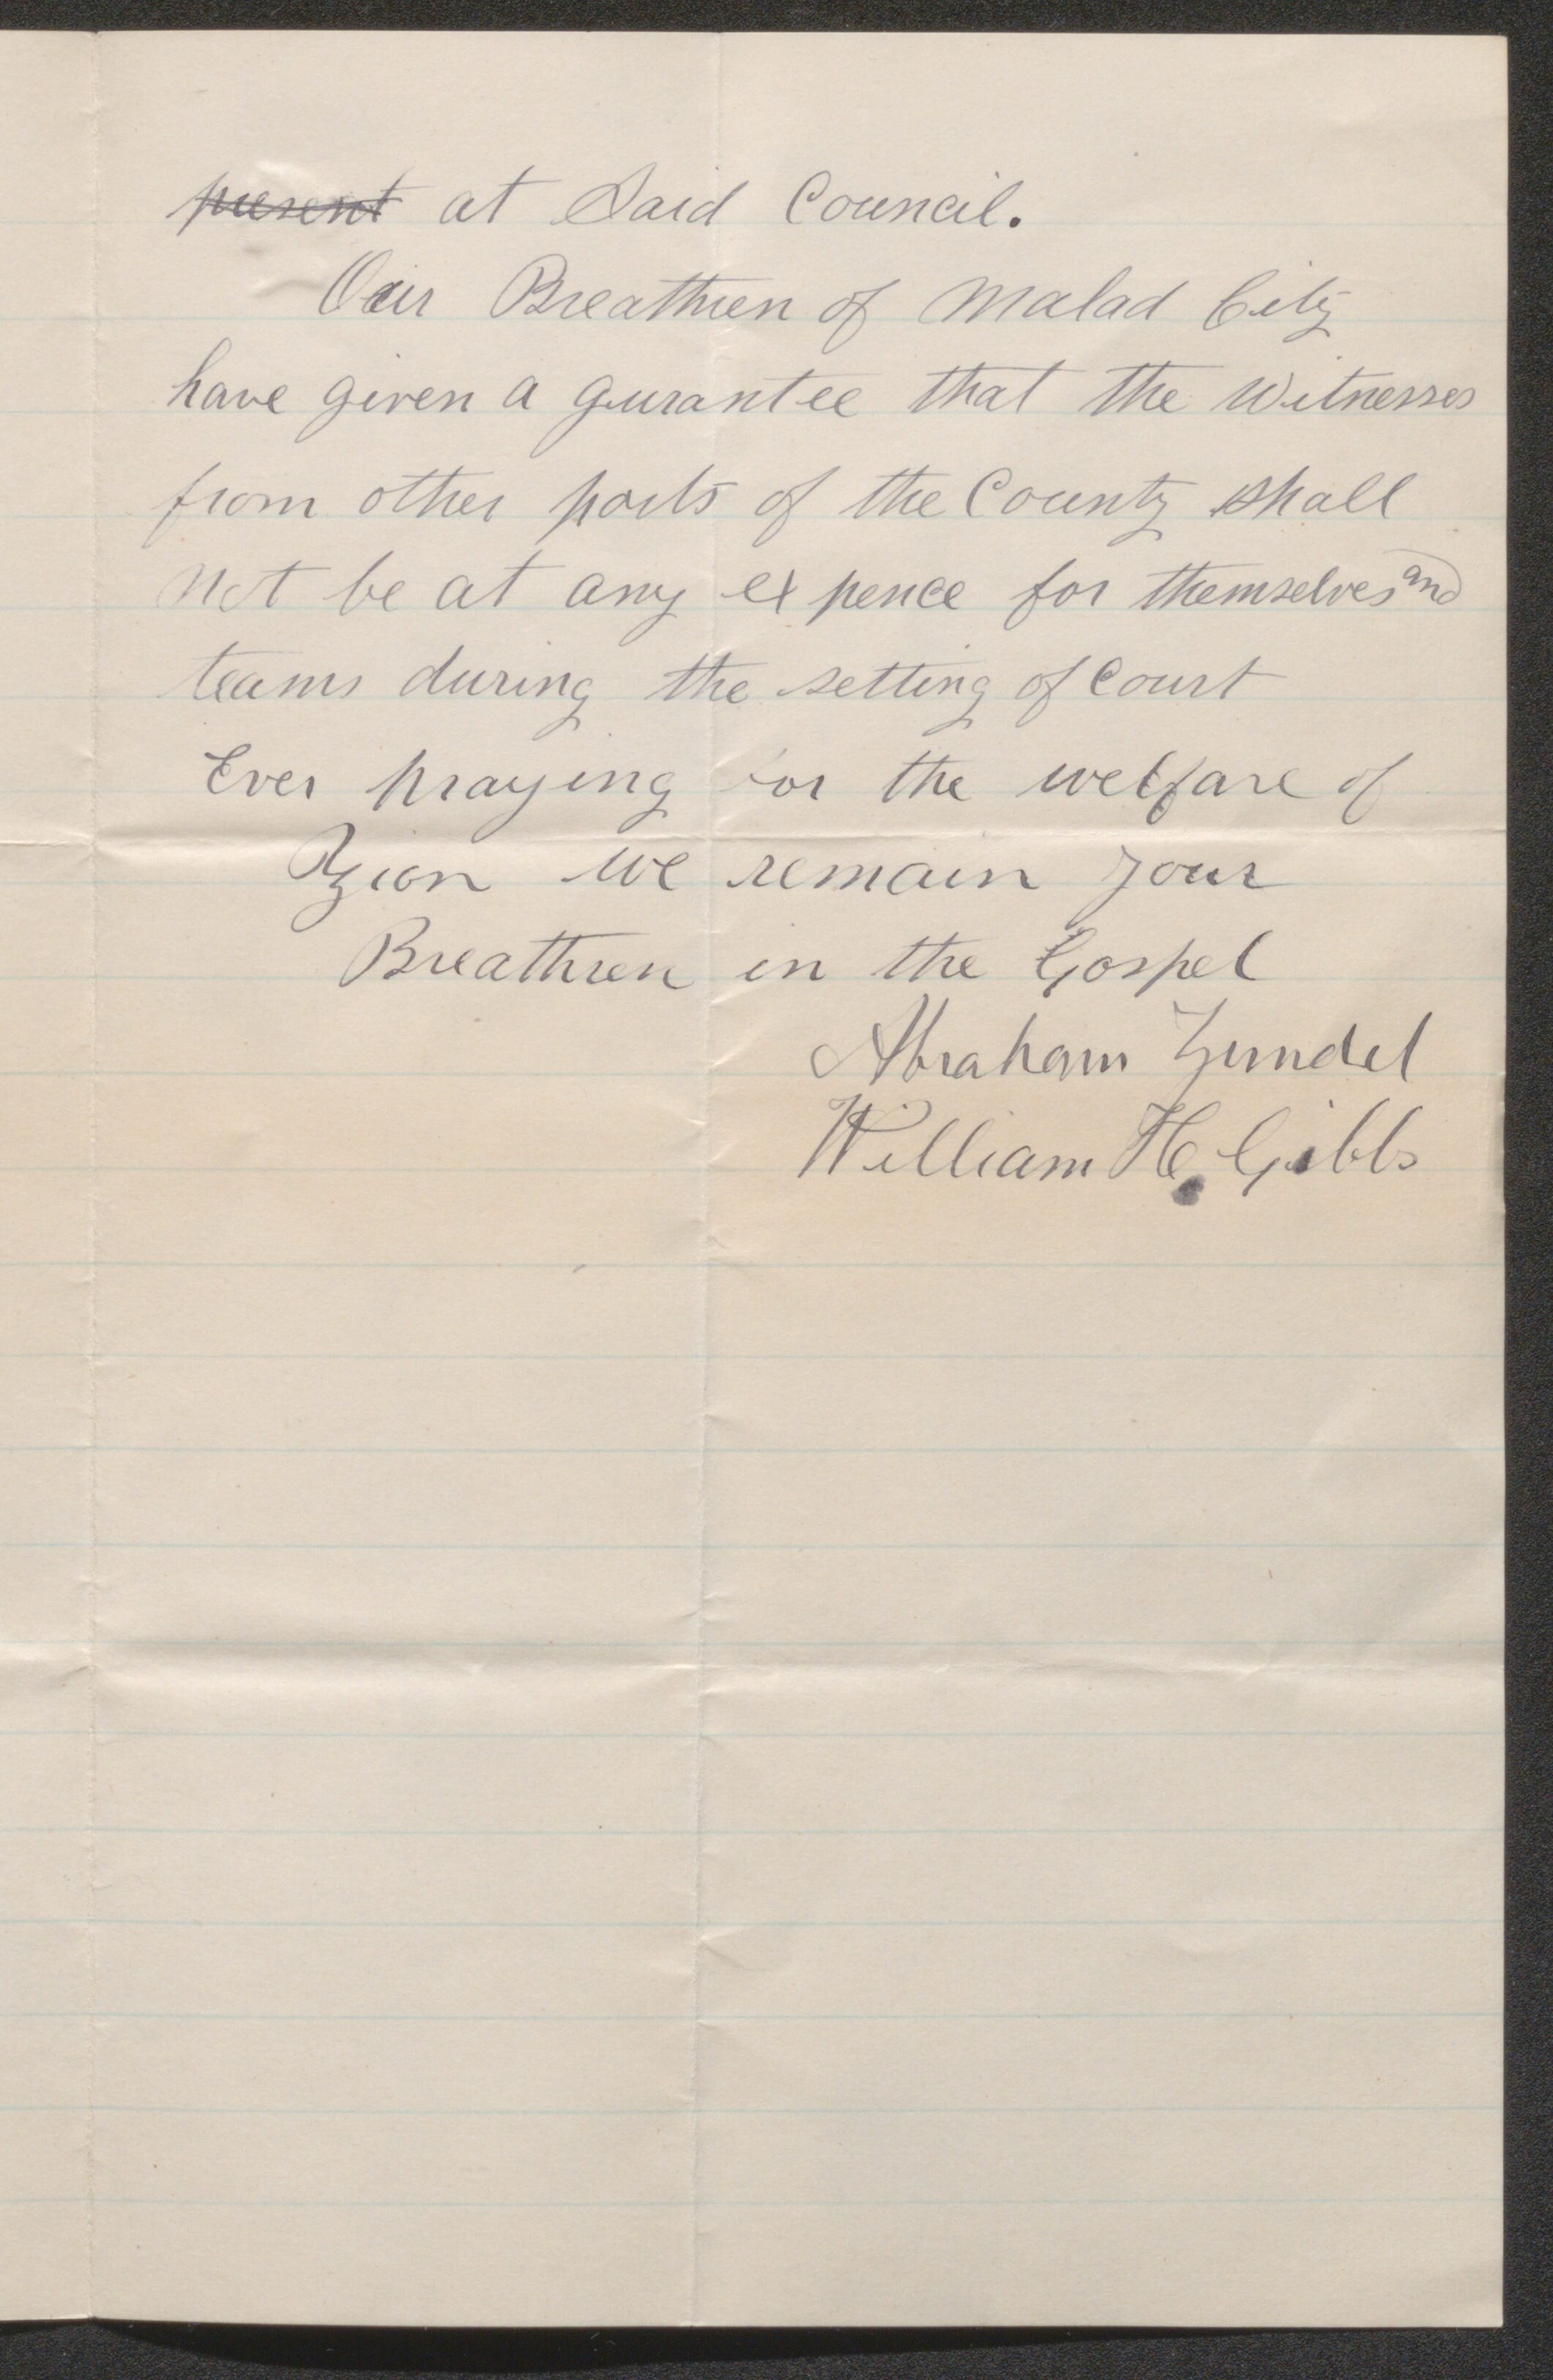 present at Said Council.
Our Breathren of Malad City
have given a gurantee that the Witnesses
from other parts of the County shall
Not be at any expence for themselves and
teams during the setting of Court
Ever praying for the welfare of
Zion we remain your
Breathren in the Gospel
Abraham Zundel
William H. Gibbs